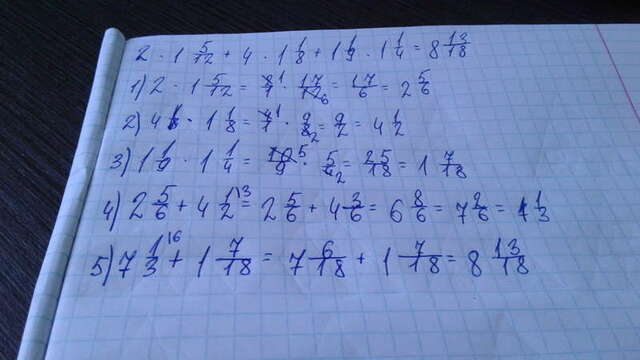 2 · 1 5/12 + 4 · 1 1/8 + 1 1/9 · 1 1/4 = 8 13/18
1) 2 · 1 5/12 = 2/1 · 17/12 6 = 17/6 = 2 5/6
2) 4 · 1 1/8 = 4/1 · 9/8 2 = 9/2 = 4 1/2
3) 1 1/9 · 1 1/4 = 10 5/9 · 5/4 2 = 25/18 = 1 7/18
4) 2 5/6 + 4 1/2 3 = 2 5/6 + 4 3/6 = 6 8/6 = 7 2/6 = 7 1/3
5) 7 1/3 6 + 1 7/18 = 7 6/18 + 1 7/18 = 8 13/18